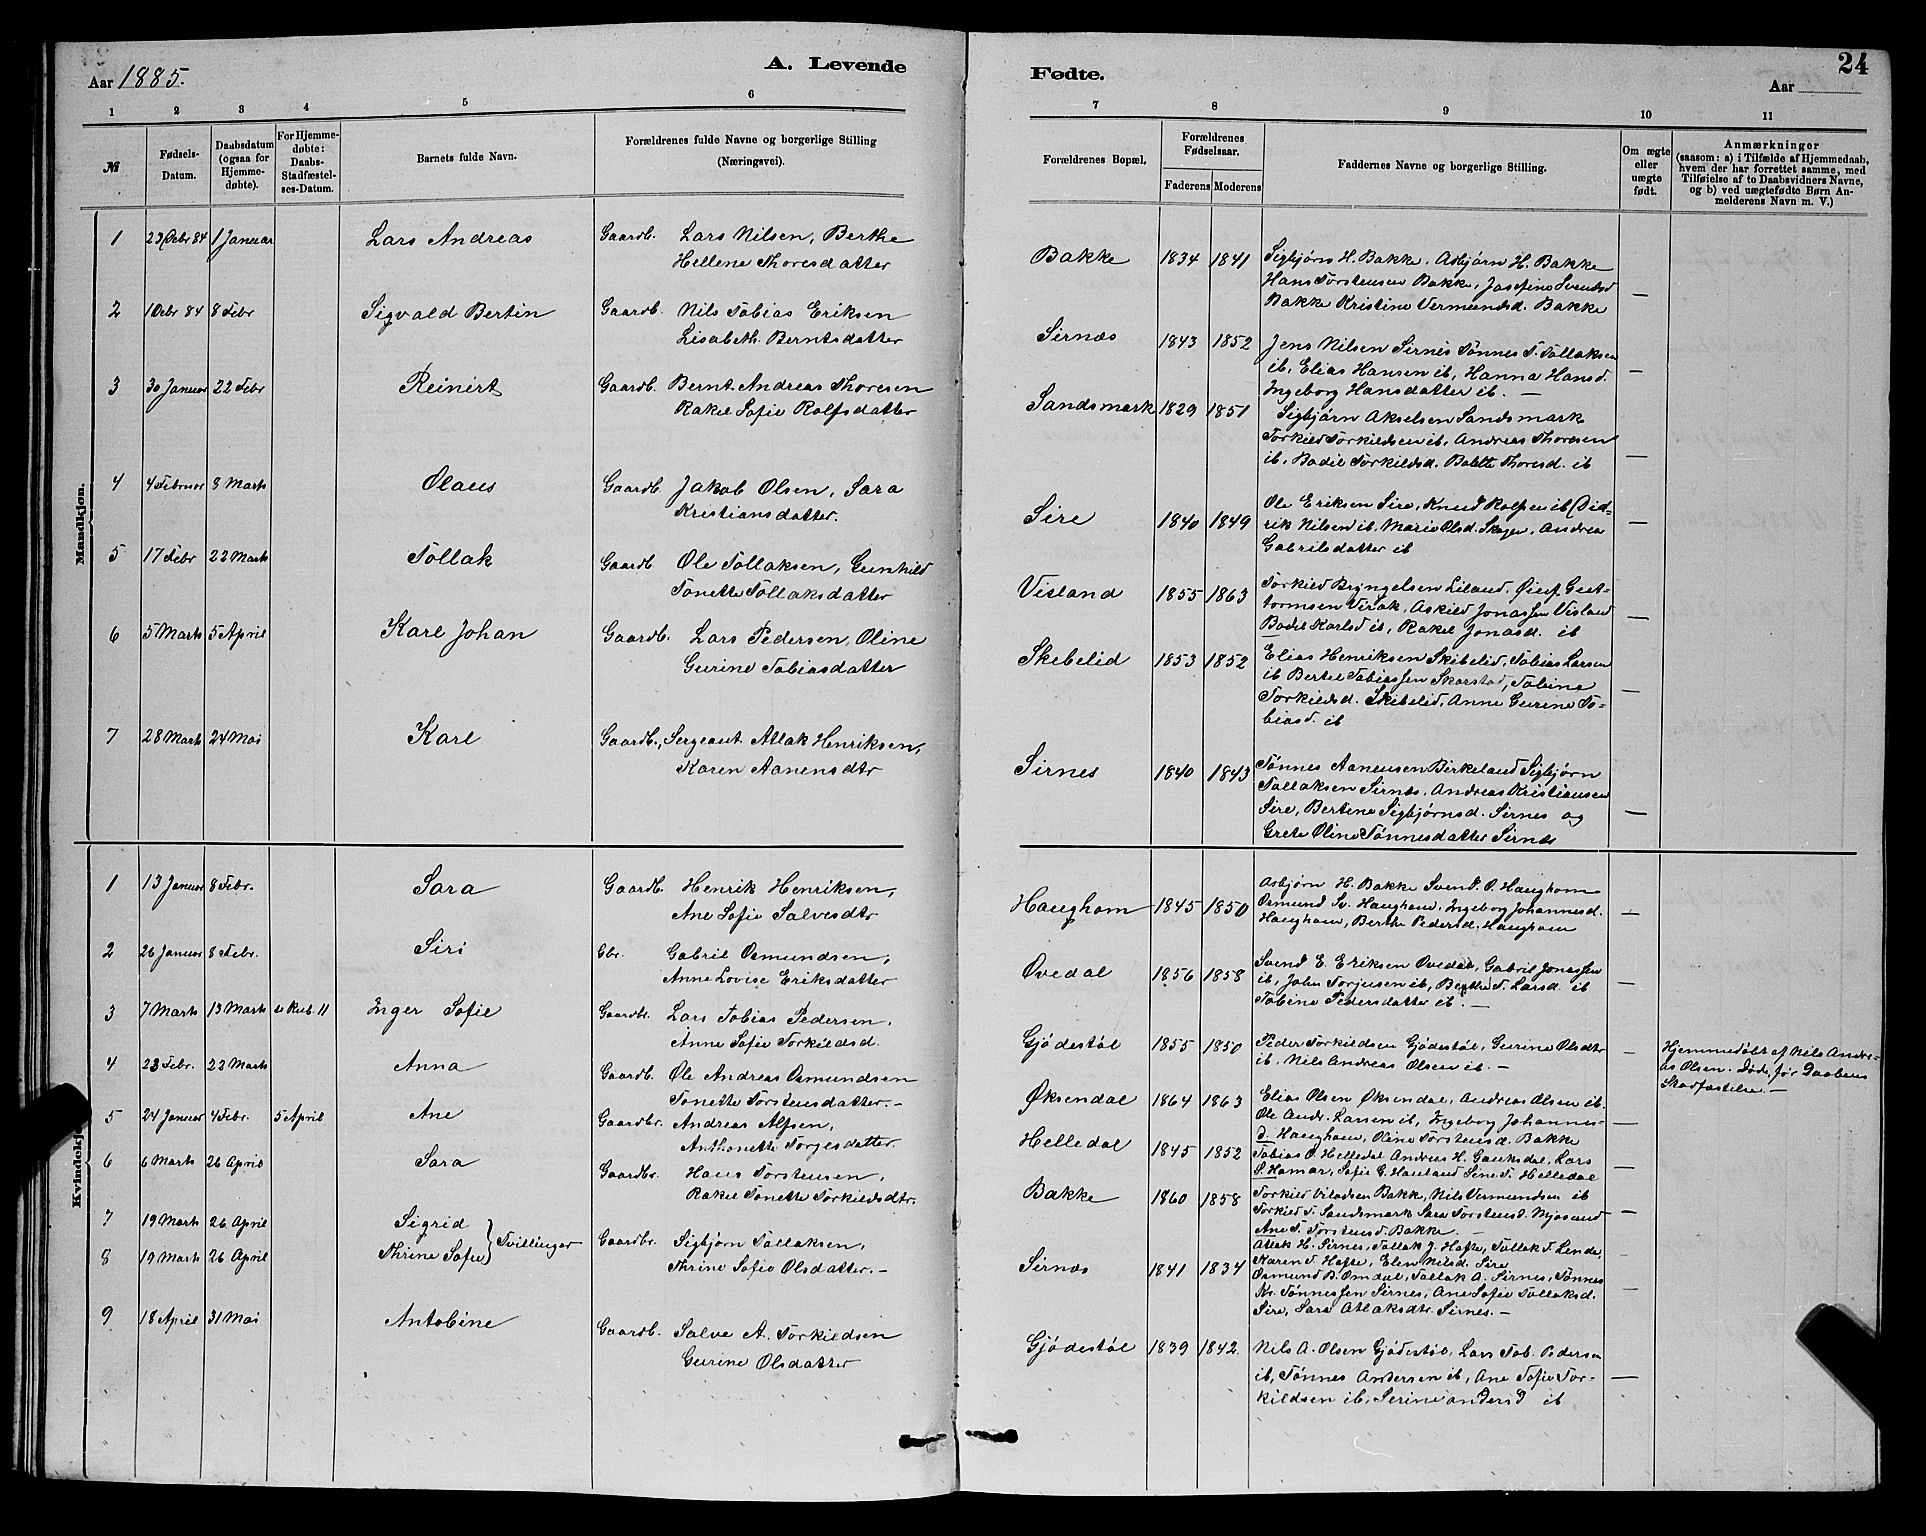 Aar 1885.
A. Levende
1 2 3 4 5 6
№
Fødsels-
Datum.
Daabsdatum
(ogsaa for
Hjemme-
døbte).
For Hjemme-
døbte:
Daabs-
Stadfæstel-
ses-Datum.
Barnets fulde Navn.
Forældrenes fulde Navne og borgerlige Stilling
(Næringsvei).
Mandkjøn.
1 23 Debr 84 1 Januar Lars Andreas Gaardb. Lars Nilsen, Berthe
Hellene Thoresdatter
2 1 Debr 84 8 Febr Sigvald Bertin Gaardb. Nils Tobias Eriksen
Lisabeth Berntsdatter
3 30 Januar 22 Febr Reinert Gaardb. Bernt Andreas Thoresen
Rakel Sofie Rolfsdatter
4 4 Februar 8 Marts Olaus Gaardb. Jakob Olsen, Sara
Kristiansdatter.
5 17 Febr 22 Marts Tollak Gaardb Ole Tollaksen, Gunhild
Tonette Tollaksdatter
6 5 Marts 5 April Karl Johan Gaardb. Lars Pedersen, Oline
Gurine Tobiasdatter
7 28 Marts 24 Mai Karl Gaardb., Sergeant Atlak Henriksen,
Karen Aanensdtr
Kvindekj
1 13 Januar 8 Febr. Sara Gaardb. Henrik Henriksen,
Ane Sofie Salvesdtr
2 26 Januar 8 Febr. Siri Gbr. Gabriel Osmundsen,
Anne Lovise Eriksdatter
3 7 Marts 13 Marts se Rub. 11 Inger Sofie Gaardbr. Lars Tobias Pedersen,
Anne Sofie Torkildsd.
4 23 Febr. 22 Marts Anna Gaardb. Ole Andreas Osmundsen
Tonette Torstensdatter. –
5 24 Januar 4 Febr. 5 April Ane Gaardbr. Andreas Alfsen,
Anthonette Torgesdatter
6 6 Marts 26 April Sara Gaardbr. Hans Torstensen,
Rakel Tonette Torkildsdtr.
7 19 Marts 26 April Sigrid
8 19 Marts 26 April Thrine Sofie } Tvillinger Gaardbr. Sigbjørn Tollaksen,
Thrine Sofie Olsdatter. –
9 18 April 31 Mai Antobine Gaardb. Salve A. Torkildsen
Gurine Olsdatter
Fødte.
Aar
24
7 8 9 10 11
Forældrenes Bopæl.
Forældrenes
Fødselsaar.
Faderens Moderens
Faddernes Navne og borgerlige Stilling.
Om ægte
eller
uægte
født.
Anmærkninger
(saasom: a) i Tilfælde af Hjemmedaab,
hvem der har forrettet samme, med
Tilføielse af to Daabsvidners Navne,
og b) ved uægtefødte Børn An-
melderens Navn m. V.)
Bakke 1834 1841 Sigbjørn H. Bakke, Asbjørn H. Bakke
Hans Torstensen Bakke, Josefine Svendsd
Bakke Kristine Vermundsd. Bakke –
Sirnæs 1843 1852 Jens Nilsen Sirnes Tønnes T. Tollaksen
ib, Elias Hansen ib, Hanna Hansd.
Ingeborg Hansdatter ib. –
Sandsmark 1829 1851 Sigbjørn Akselsen Sandsmark
Torkild Torkildsen ib, Andreas Thoresen
ib, Bodil Torkildsd. Bolette Thoresd. ib –
Sire 1840 1849 Ole Eriksen Sire, Knud Rolfsen ib Did-
rik Nilsen ib, Marie Olsd. Skogen, Andrea
Gabrilsdatter ib –
Visland 1855 1863 Torkild Bryngelsen Liland, Gut-
tormsen Virak, Askild Jonassen Visland
Bodil Karlsd ib, Rakel Jonasd. ib –
Skebelid 1853 1852 Elias Henriksen Skibelid, Tobias Larsen
ib Bertel Tobiassen Skarstad, Tobine
Torkildsd. Skibelid, Anne Gurine To-
biasd. ib –
Sirnes 1840 1843 Tønnes Aanensen Birkeland Sigbjørn
Tollaksen Sirnæs, Andreas Kristiansen
Sire, Bertine Sigbjørnsd. Sirnes og
Grete Oline Tønnesdatter Sirnæs –
Haughom 1845 1850 Asbjørn H. Bakke Svend O. Haughom
Osmund Sv. Haughom, Ingeborg Johannesd.
Haughom, Berthe Pedersd. Haughom –
Ovedal 1856 1858 Svend E. Eriksen Ovedal, Gabril Jonassen
ib, John Torjusen ib, Berthe T. Larsd. ib
Tobine Pedersdatter ib. –
Gjødestøl 1855 1850 Peder Torkildsen Gjødestøl, Gurine Olsdtr
ib, Nils Andreas Olsen ib. – Hjemmedøbt af Nils Andre-
as Olsen. Døde, før Daabens
Stadfæstelse. –
Øksendal 1864 1863 Elias Olsen Øksendal, Andreas Olsen ib.
Ole Andr. Larsen ib, Ingeborg Johannes-
d. Haughom, Oline Torstensd. Bakke
Helledal 1845 1852 Tobias O. Helledal Andreas H. Gauksdal, Lars
S. Hamar, Sofie G. Houland Sine T. Helledal –
Bakke 1860 1858 Torkild Viladsen Bakke, Nils Vermundsen ib
Torkild T. Sandsmark Sara Torstensd. Mjosund
Ane T. Torstensd. Bakke. –
Sirnæs 1841 1834 Atlak H. Sirnes, Tollak J. Hafte, Tollak T. Lende,
Karen T. Hafte, Elen Nilsd. Sire
Osmund B. Omdal, Tollak A. Sirnes, Tønnes
Kr. Tønnessen Sirnes, Ane Sofie Tollaksd.
Sire, Sara Atlaksdtr. Sirnes. –
Gjødestøl 1839 1842. Nils A. Olsen Gjødestøl, Lars Tob. Pedersen
ib, Tønnes Andersen ib, Ane Sofie Tor-
kildsen ib, Serine Andersd ib –